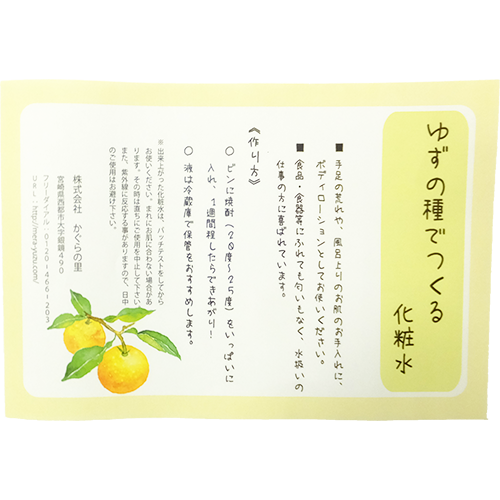 ゆずの種でつくる
化粧水
■手足の荒れや、風呂上りのお肌のお手入れに、
ボディローションとしてお使いください。
■食品・食器等にふれても匂いもなく、水扱いの
仕事の方に喜ばれています。
《作り方》
○ビンに焼酎（20度～25度）をいっぱいに
入れ、1週間程したらできあがり！
○液は冷蔵庫で保管をおすすめします。
※出来上がった化粧水は、パッチテストをしてから
お使いください。まれにお肌に合わない場合があ
ります。その時は直ちにご使用を中止して下さい。
また、紫外線に反応する事がありますので、日中
のご使用はお避け下さい。
株式会社 かぐらの里
宮崎県西都市大字銀鏡490
フリーダイアル：0120-466-203
URL：http://mera-yuzu.com/